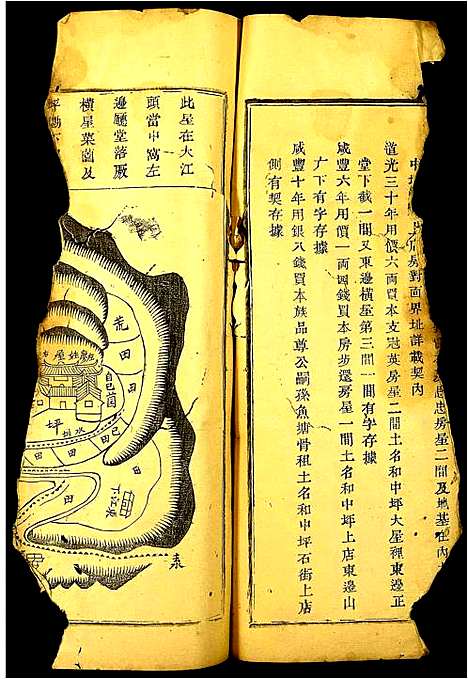 房對面界址詳載契內
忠房星二間及地基在內
道光三十年用價六兩買本支冠英房星二間土名和中坪大星裡東邊正
堂下截一間又東邊橫星第三間一間有字存據
咸豐六年用價一兩四錢買本房步還房星一間土名和中坪上店東邊山
广下有字存據
咸豐十年用銀八錢買本族品尊公嗣孫魚塘骨租土名和中坪石街上店
側有契存據
此星在大江
頭當中窩左
邊廳堂落廒
橫星菜園及
荒
田
田
自己園
坪
水圳
田
田
田
田
東